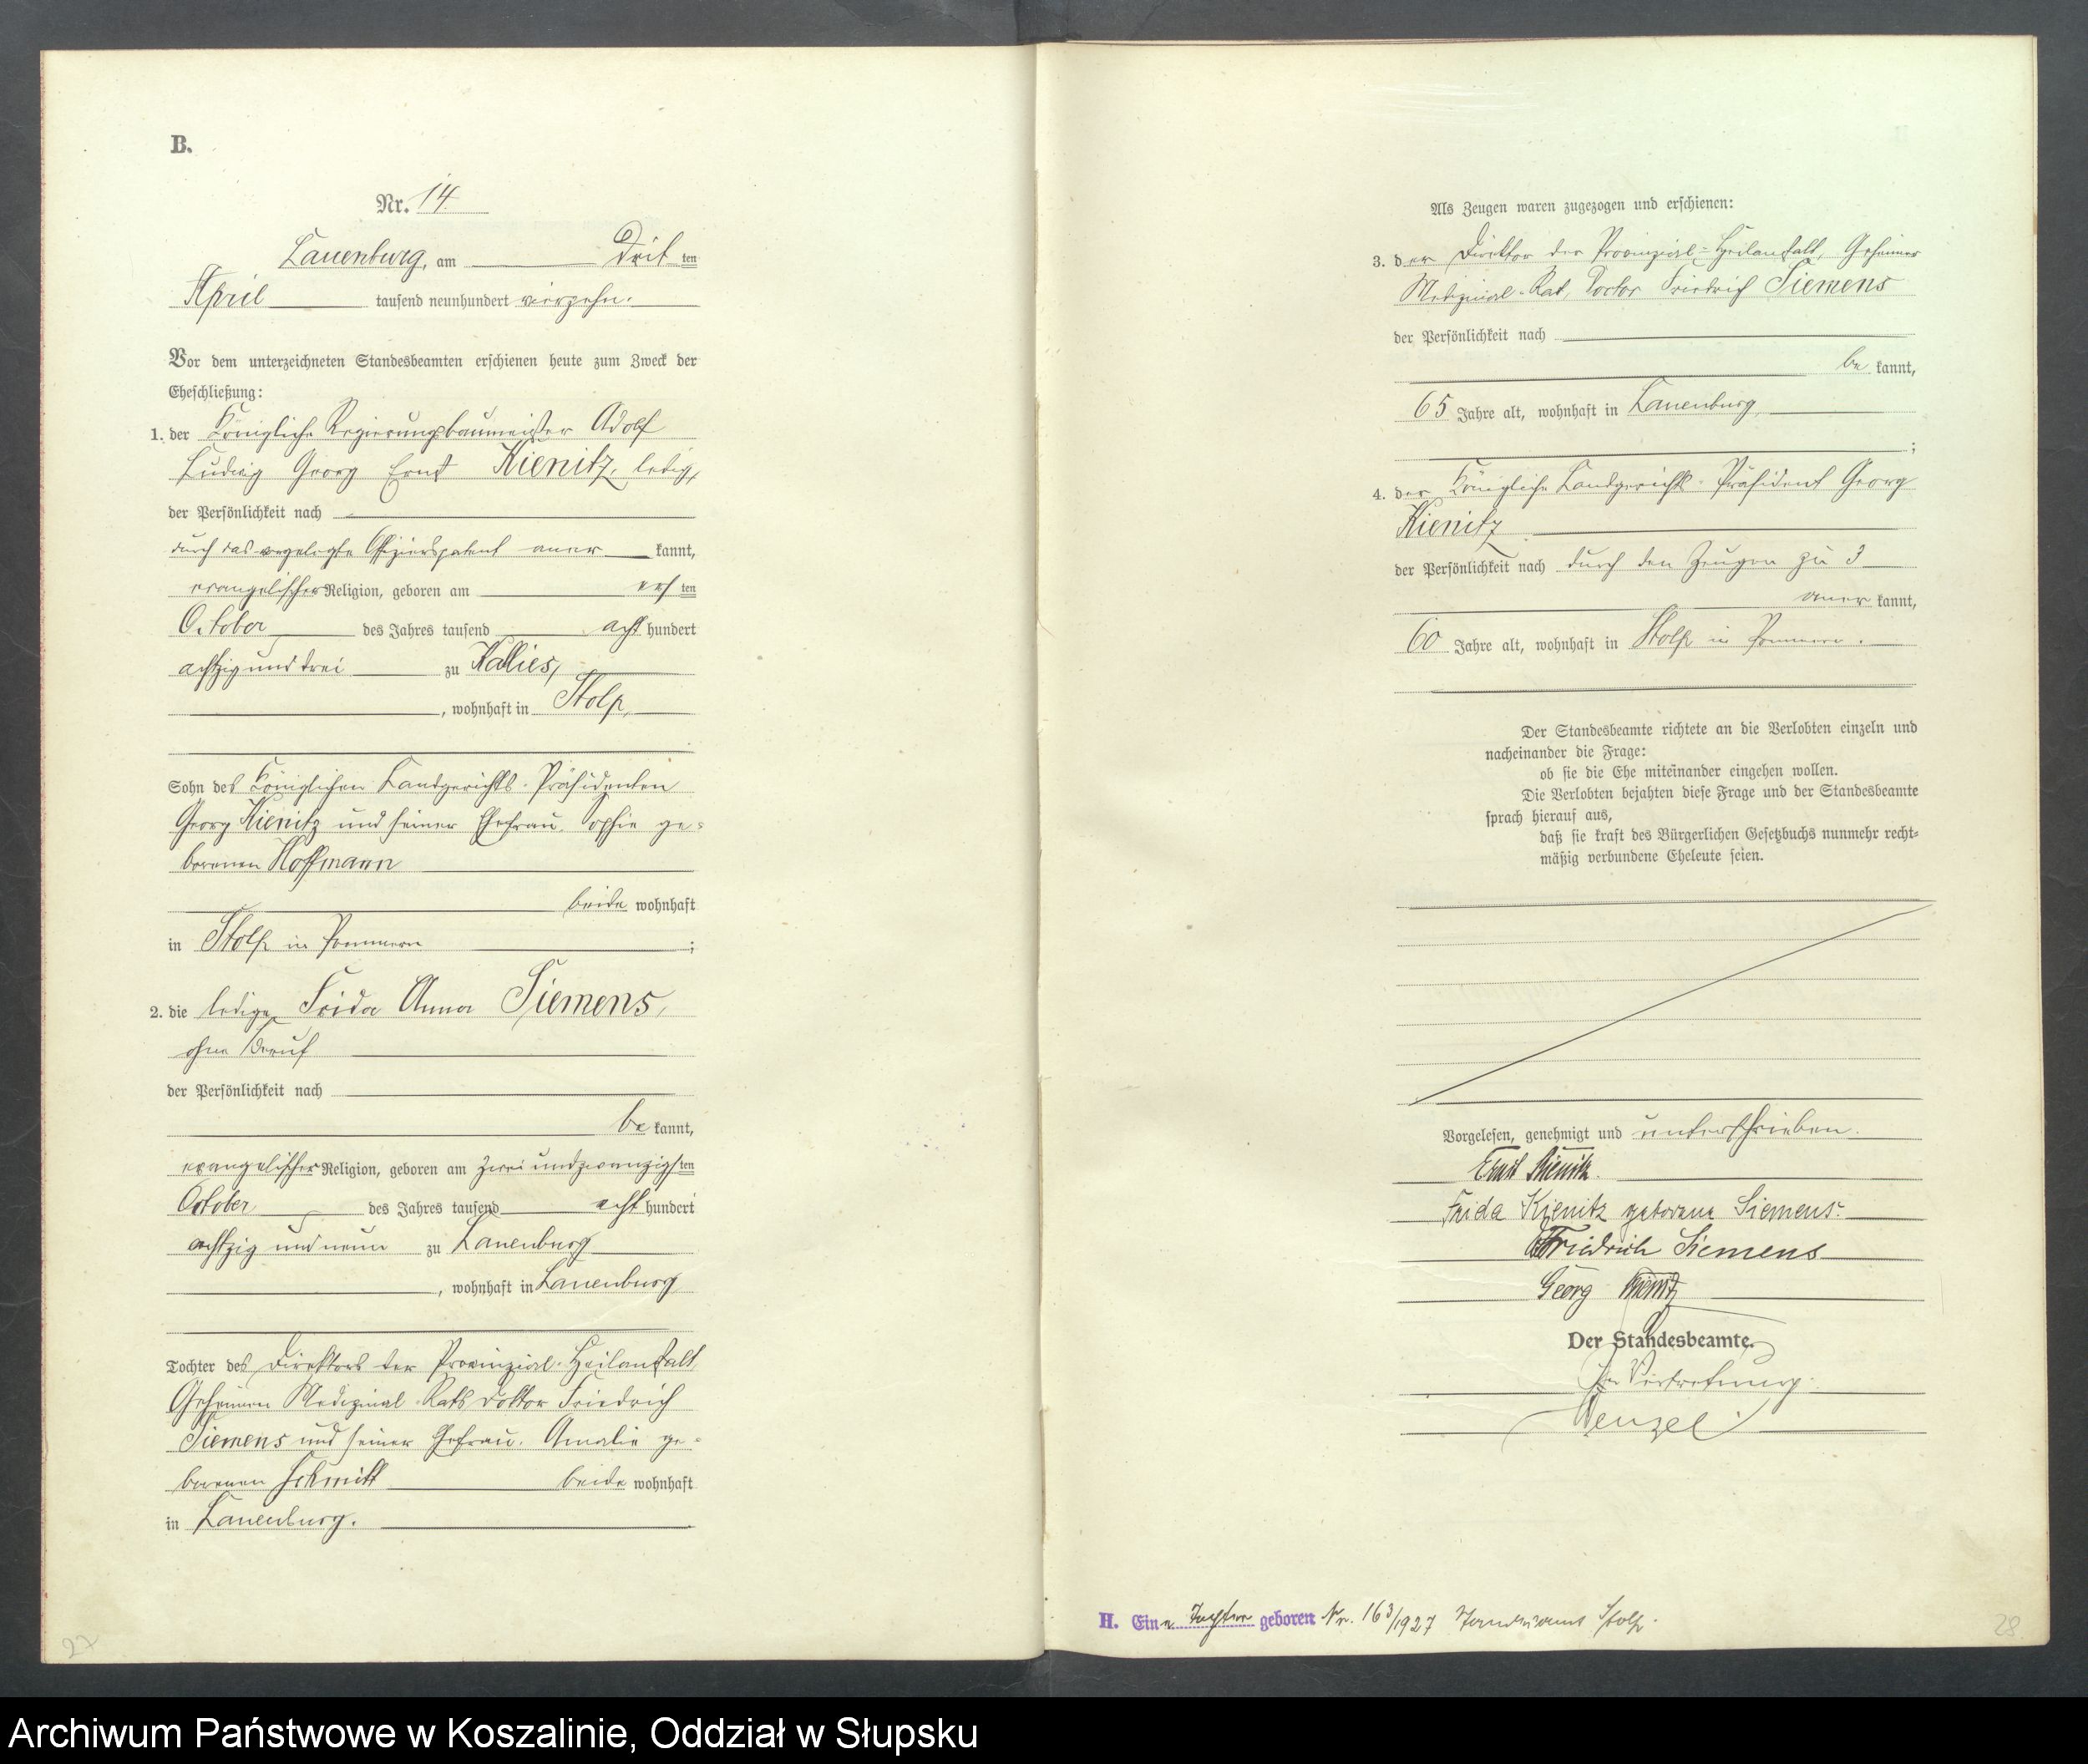 B.
Nr. 14.
Lauenburg, am Drit ten
April tausend neunhundert vierzehn.
Vor dem unterzeichneten Standesbeamten erschienen heute zum Zweck der
Eheschließung:
1. der Königliche Regierungsbaumeister Adolf
Ludwig Georg Ernst Kienitz, ledig,
der Persönlichkeit nach
durch das vorgelegte Offizierspatent aner kannt,
evangelischer Religion, geboren am ers ten
October des Jahres tausend acht hundert
achtzig und drei zu Kallies,
, wohnhaft in Stolp,
Sohn des Königlichen Landgerichts-Präsidenten
Georg Kienitz und seiner Ehefrau, Sophie ge-
borenen Hoffmann
beide wohnhaft
in Stolp in Pommern ;
2. die ledige Frida Anna Siemens,
ohne Beruf
der Persönlichkeit nach
be kannt,
evangelischer Religion, geboren am zwei und zwanzigs ten
October des Jahres tausend acht hundert
achtzig und neun zu Lauenburg
, wohnhaft in Lauenburg
Tochter des Direktors der Provinzial-Heilanstalt,
Geheimen Medizinal-Rats Doktor Friedrich
Siemens und seiner Ehefrau, Amalie ge-
borenen Schmitt beide wohnhaft
in Lauenburg.
27
Als Zeugen waren zugezogen und erschienen:
3. der Direktor der Provinzial-Heilanstalt, Geheimer
Medizinal-Rat, Doctor Friedrich Siemens
der Persönlichkeit nach
be kannt,
65 Jahre alt, wohnhaft in Lauenburg
;
4. der Königliche Landgerichts-Präsident Georg
Kienitz
der Persönlichkeit nach durch den Zeugen zu 3
aner kannt,
60 Jahre alt, wohnhaft in Stolp in Pommern.
Der Standesbeamte richtete an die Verlobten einzeln und
nacheinander die Frage:
ob sie die Ehe miteinander eingehen wollen.
Die Verlobten bejahten diese Frage und der Standesbeamte
sprach hierauf aus,
daß sie kraft des Bürgerlichen Gesetzbuchs nunmehr recht-
mäßig verbundene Eheleute seien.
Vorgelesen, genehmigt und unterschrieben.
Ernst Kienitz.
Frida Kienitz geborene Siemens.
Friedrich Siemens
Georg Kienitz
Der Standesbeamte.
In Vertretung.
Wenzel
H. Eine Tochter geboren Nr. 163/1927 Standesamt Stolp.
28
Archiwum Państwowe w Koszalinie, Oddział w Słupsku